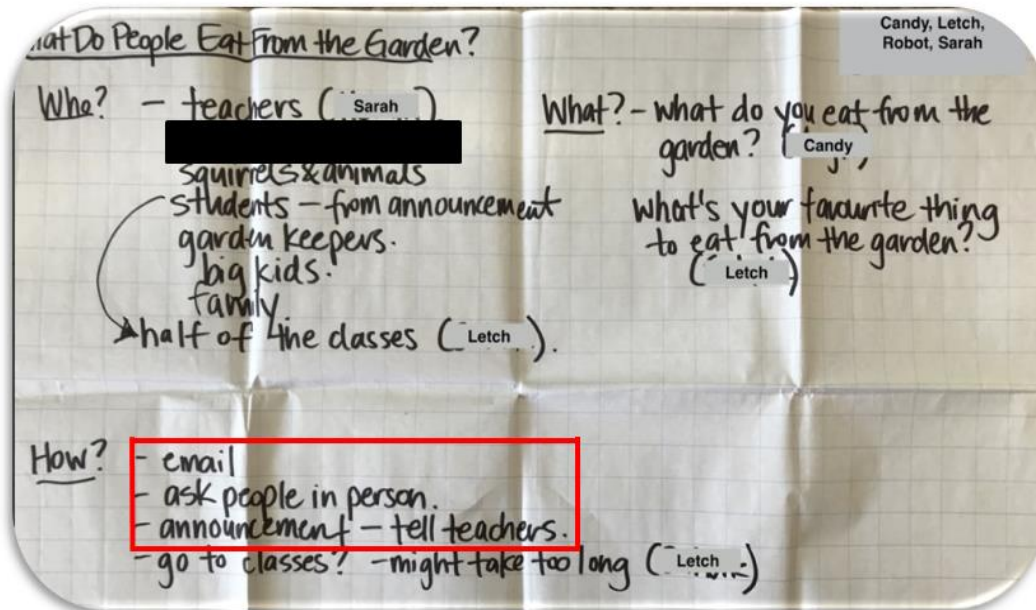 at Do People Eat From the Garden?
Candy, Letch,
Robot, Sarah
Who? - teachers (Sarah)
squirrels & animals
students - from announcement
garden keepers.
big kids.
family
half of the classes (Letch).
What? - what do you eat from the
garden? (Candy)
what's your favourite thing
to eat from the garden?
(Letch)
How? - email
- ask people in person.
- announcement - tell teachers.
- go to classes? - might take too long (Letch)